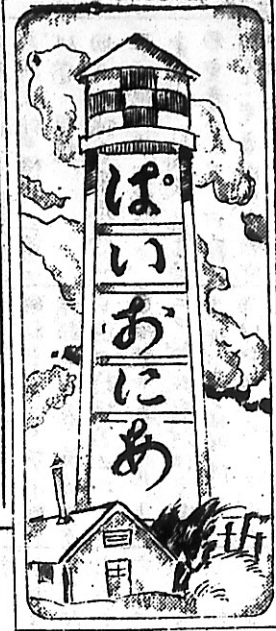 ぱいおにあ